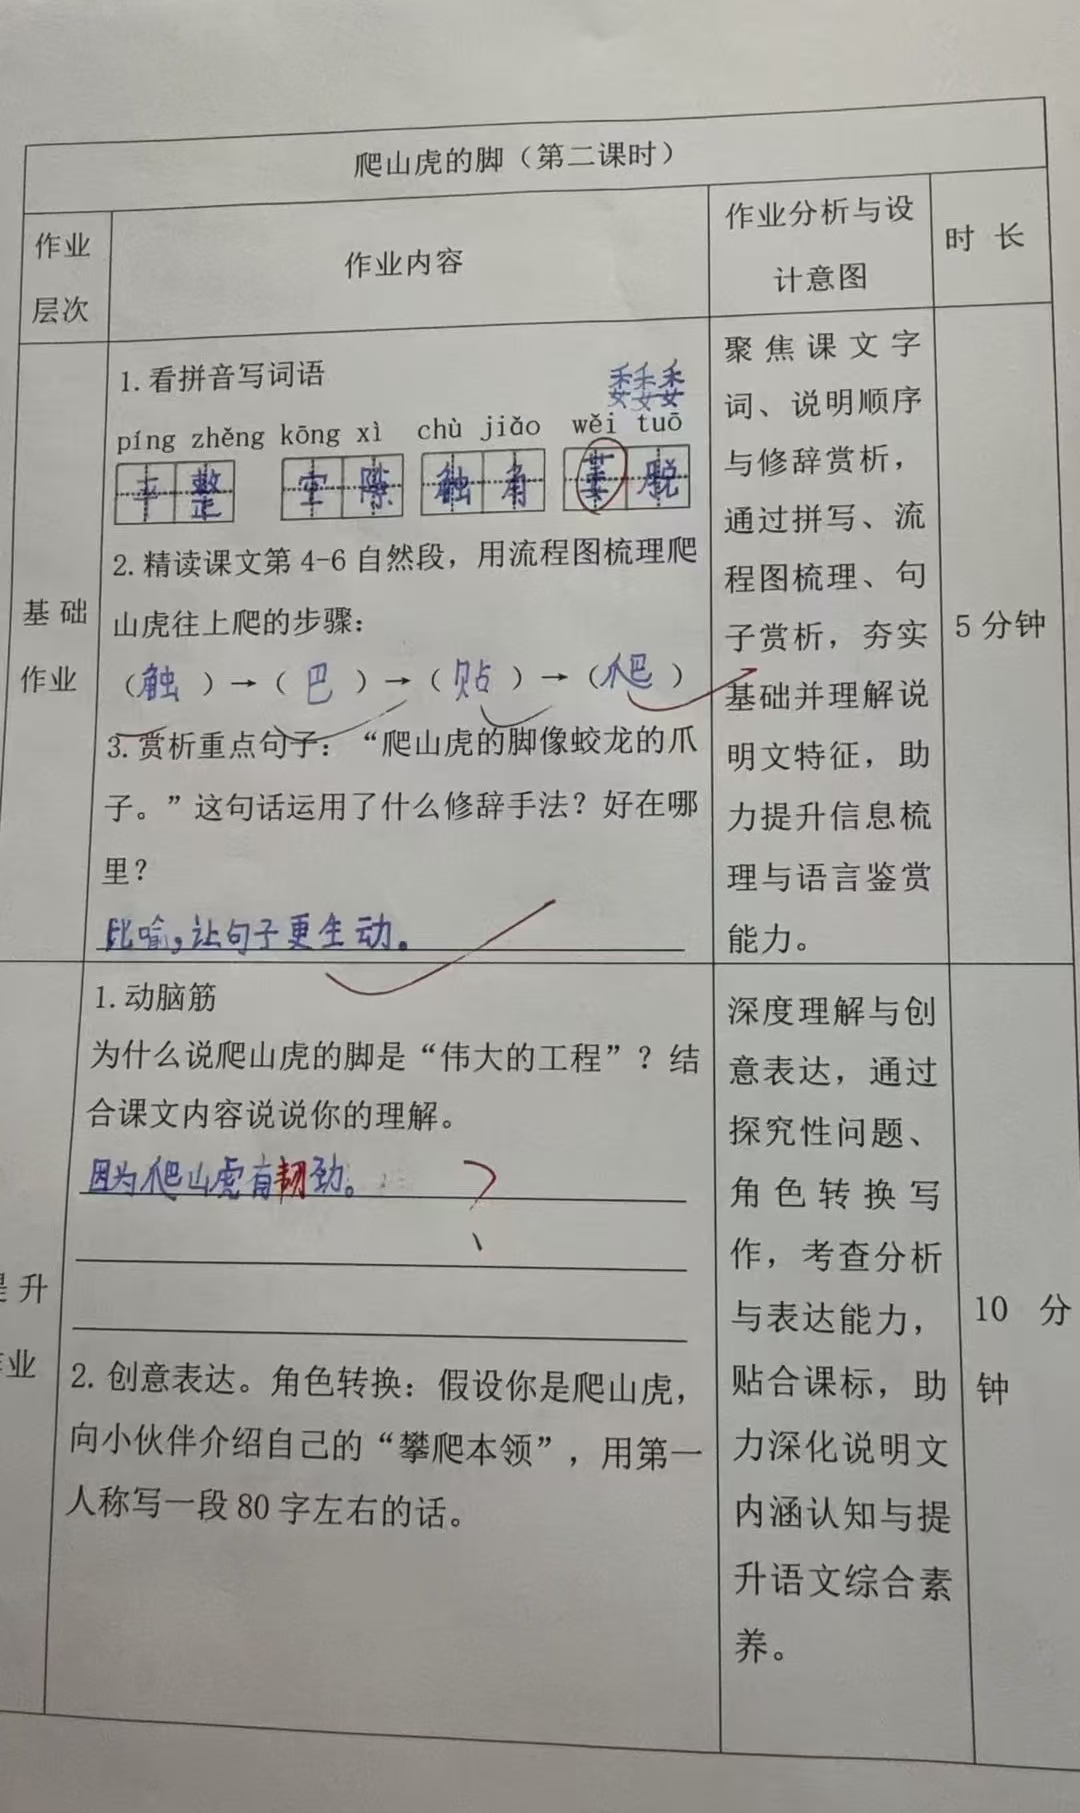 爬山虎的脚（第二课时）
作业
层次
作业内容
作业分析与设
计意图
时 长
基 础
作业
1.看拼音写词语
委委委
píng zhěng kōng xì chù jiǎo wěi tuō
平 整 空 隙 触 角 萎 脱
2.精读课文第 4-6 自然段，用流程图梳理爬
山虎往上爬的步骤：
（触）→（巴）→（贴）→（爬）
3.赏析重点句子：“爬山虎的脚像蛟龙的爪
子。”这句话运用了什么修辞手法？好在哪
里？
比喻,让句子更生动。
聚焦课文字
词、说明顺序
与修辞赏析，
通过拼写、流
程图梳理、句
子赏析，夯实
基础并理解说
明文特征，助
力提升信息梳
理与语言鉴赏
能力。
5 分钟
升
业
1.动脑筋
为什么说爬山虎的脚是“伟大的工程”？结
合课文内容说说你的理解。
因为爬山虎有韧劲。
?
2. 创意表达。角色转换：假设你是爬山虎，
向小伙伴介绍自己的“攀爬本领”，用第一
人称写一段 80 字左右的话。
深度理解与创
意表达，通过
探究性问题、
角色转换写
作，考查分析
与表达能力，
贴合课标，助
力深化说明文
内涵认知与提
升语文综合素
养。
10 分
钟